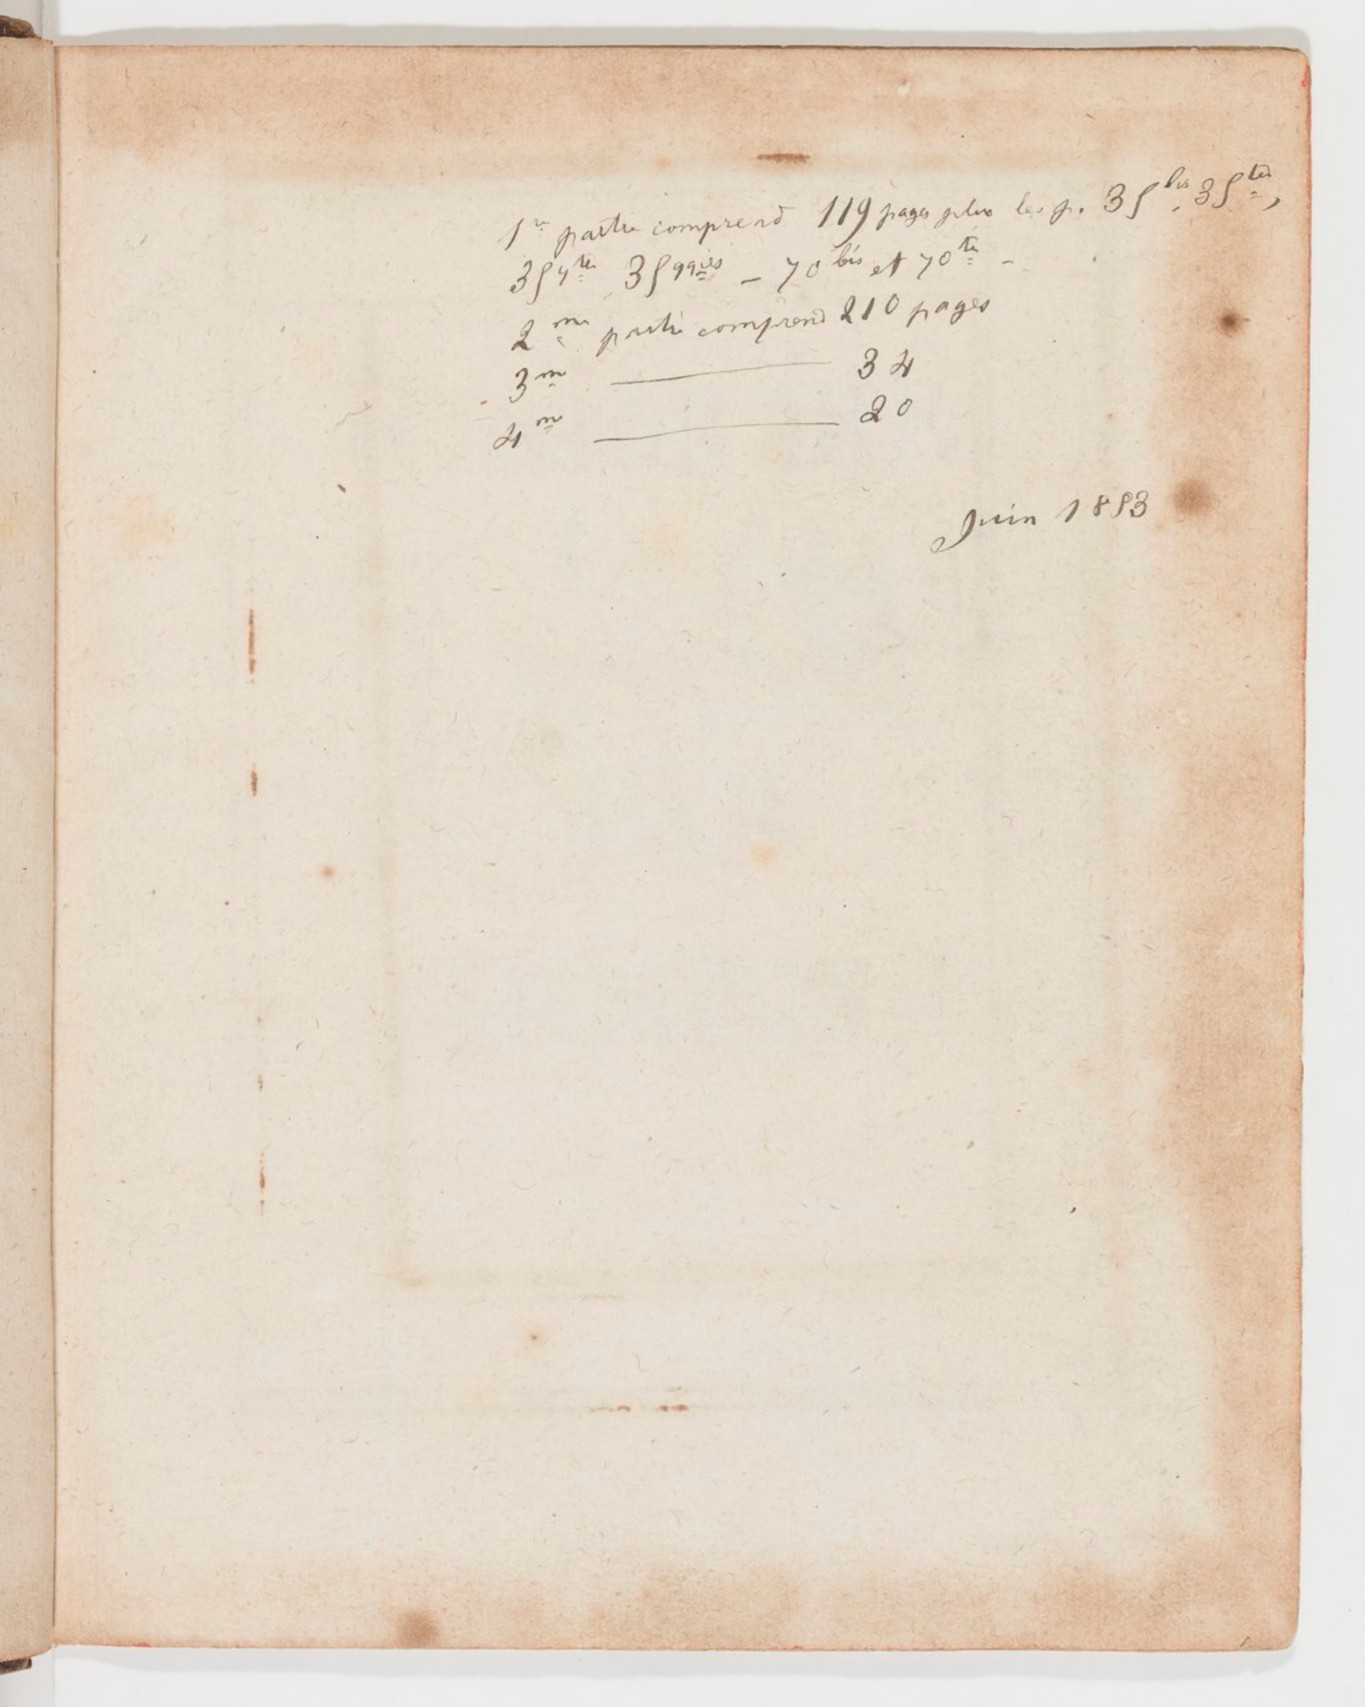 1re partie comprend 119 pages plus les p. 35 bis, 35 ter,
35 4ter 35 qqies – 70 bis et 70 ter –
2me partie comprend 210 pages
3me ——— 34
4me ——— 20
Juin 1853